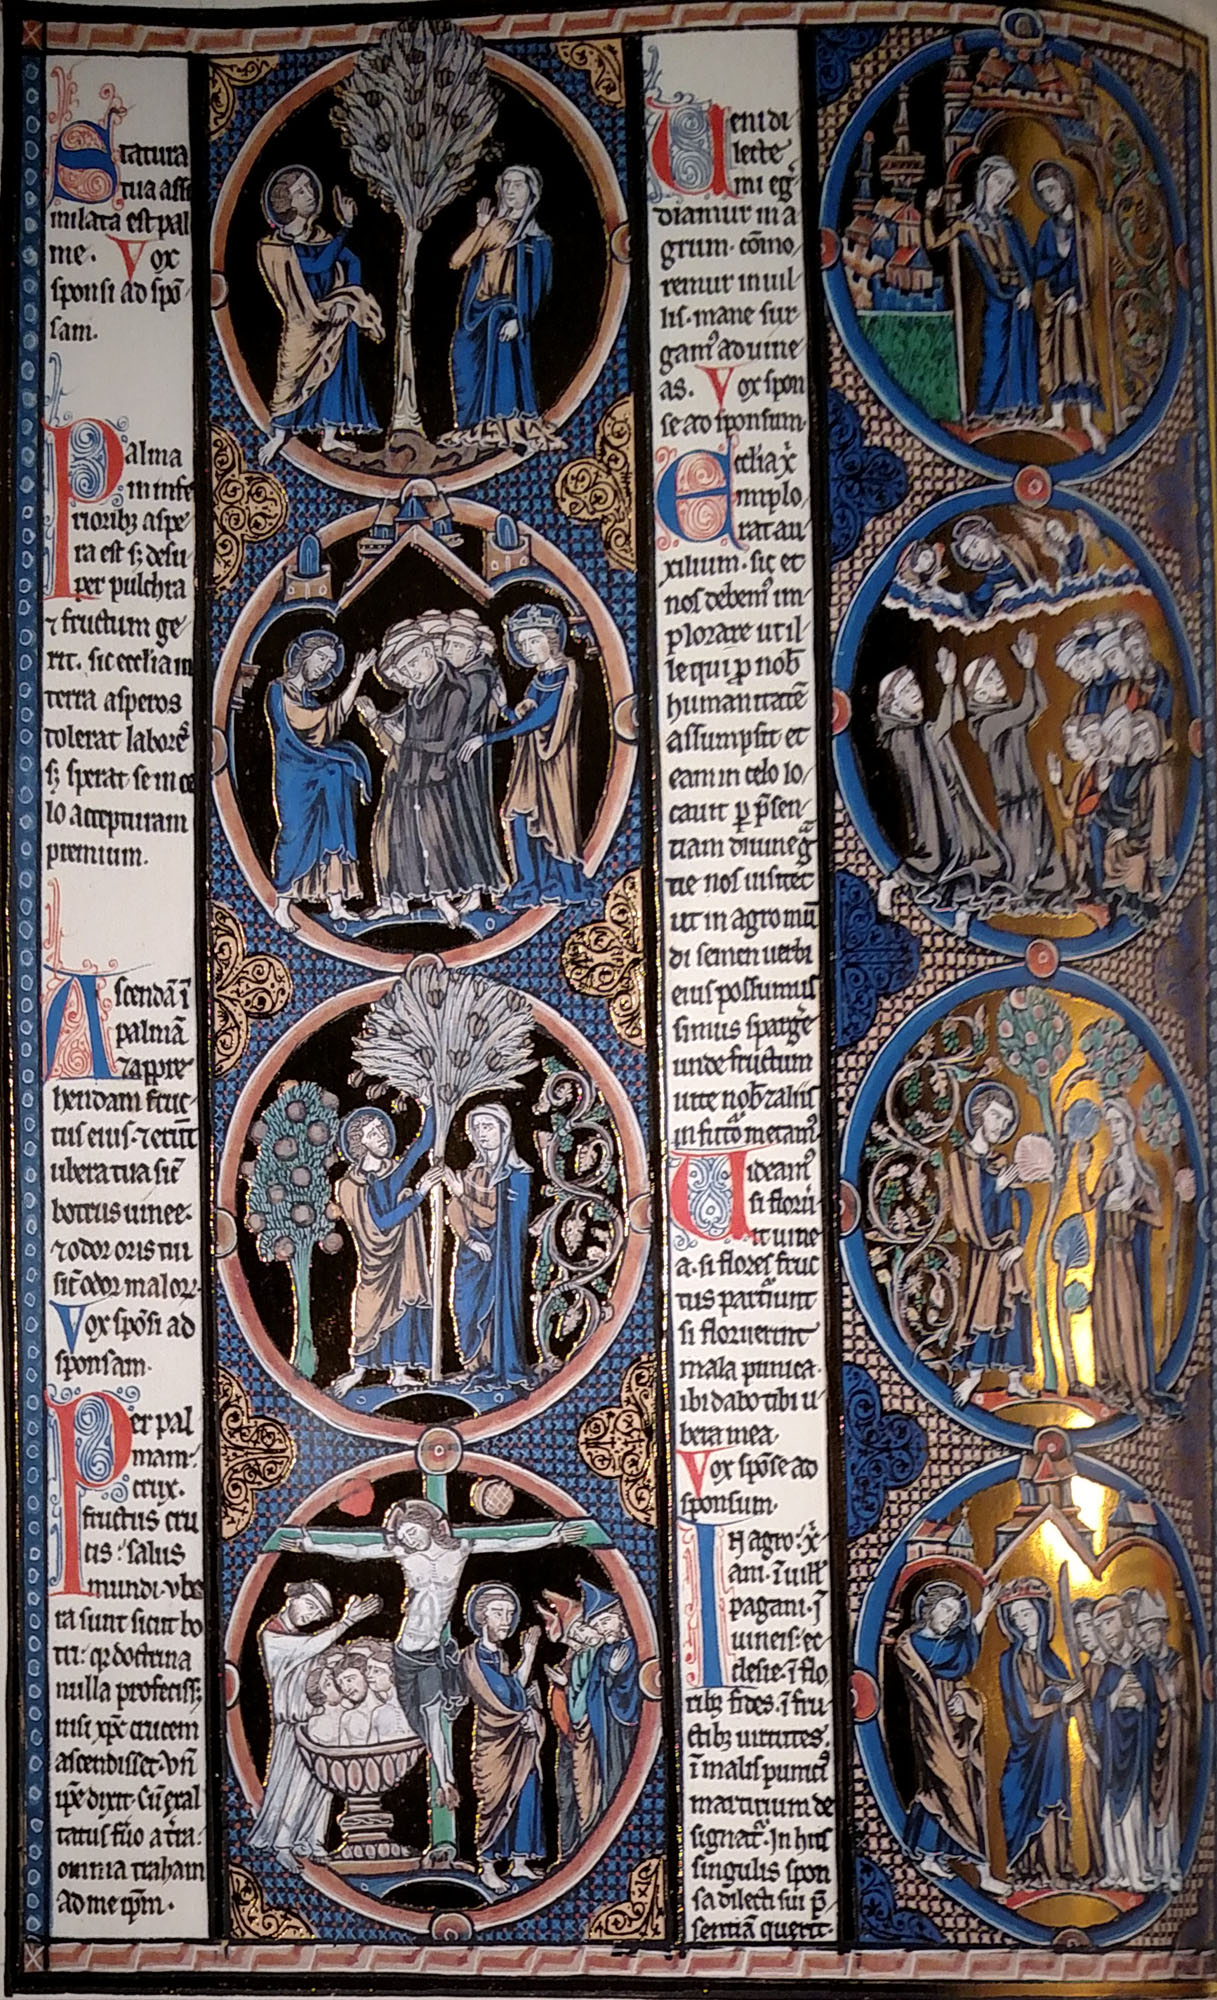 Statura
tua assi
milata est pal
me. Vox
sponsi ad spō
sam.
Palma
in infe
riorib; aspe
ra est s; desu
per pulchra
⁊ fructum ge
rit. sic ecclia in
terra asperos
tolerat labores
s; sperat se in ce
lo accepturam
premium.
Ascendā ī
palmā
⁊ appre
hendam fruc
tus eius. ⁊ erūt
ubera tua sic̄
botrus uinee.
⁊ odor oris tui
sic̄ odor malorꝝ.
Vox spōsi ad
sponsam.
Per pal
mam:
crux.
fructus cru
cis: salus
mundi. vbe
ra sunt sicut bo
tri: qꝛ doctrina
nulla profeciss;
nisi xp̄c crucem
ascendisset. Vn̄
ip̄e dixit. Cū exal
tatus fūo a t̄ra:
omnia traham
ad me ip̄m.
Ueni di
lecte
mi eg̾
diamur in a
grum. cōmo
remur in uil
lis. mane sur
gam᷒ ad uine
as. Vox spon
se ad sponsum.
Ecclia xp̄
implo
rat au
xilium. sic et
nos debem᷒ im
plorare ut il
le qui p nob̄
humanitatē
assumpsit et
eam in celo lo
cauit ꝑ p̄sen
tiam diuine gr̄
tie nos uisitet
ut in agro mū
di semen uerbi
eius possumus
simus sparg̾e
unde fructum
uite nob̄ ⁊ aliis
in futo metam᷒.
Uideam᷒
si florū
it uine
a. si flores fruc
tus parturiunt
si floruerunt
mala punica.
ibi dabo tibi u
bera mea.
Vox spōse ad
sponsum.
In agro: xp̄
am. ī uill̄
pagani. ī
uineis: ec
clesie. ī flo
rib; fides. ī fru
ctib; uirtutes.
ī malis punic᷒
martirium de
signat᷒. In hiis
singulis spon
sa dilecti sui p̄
sentiā querit.